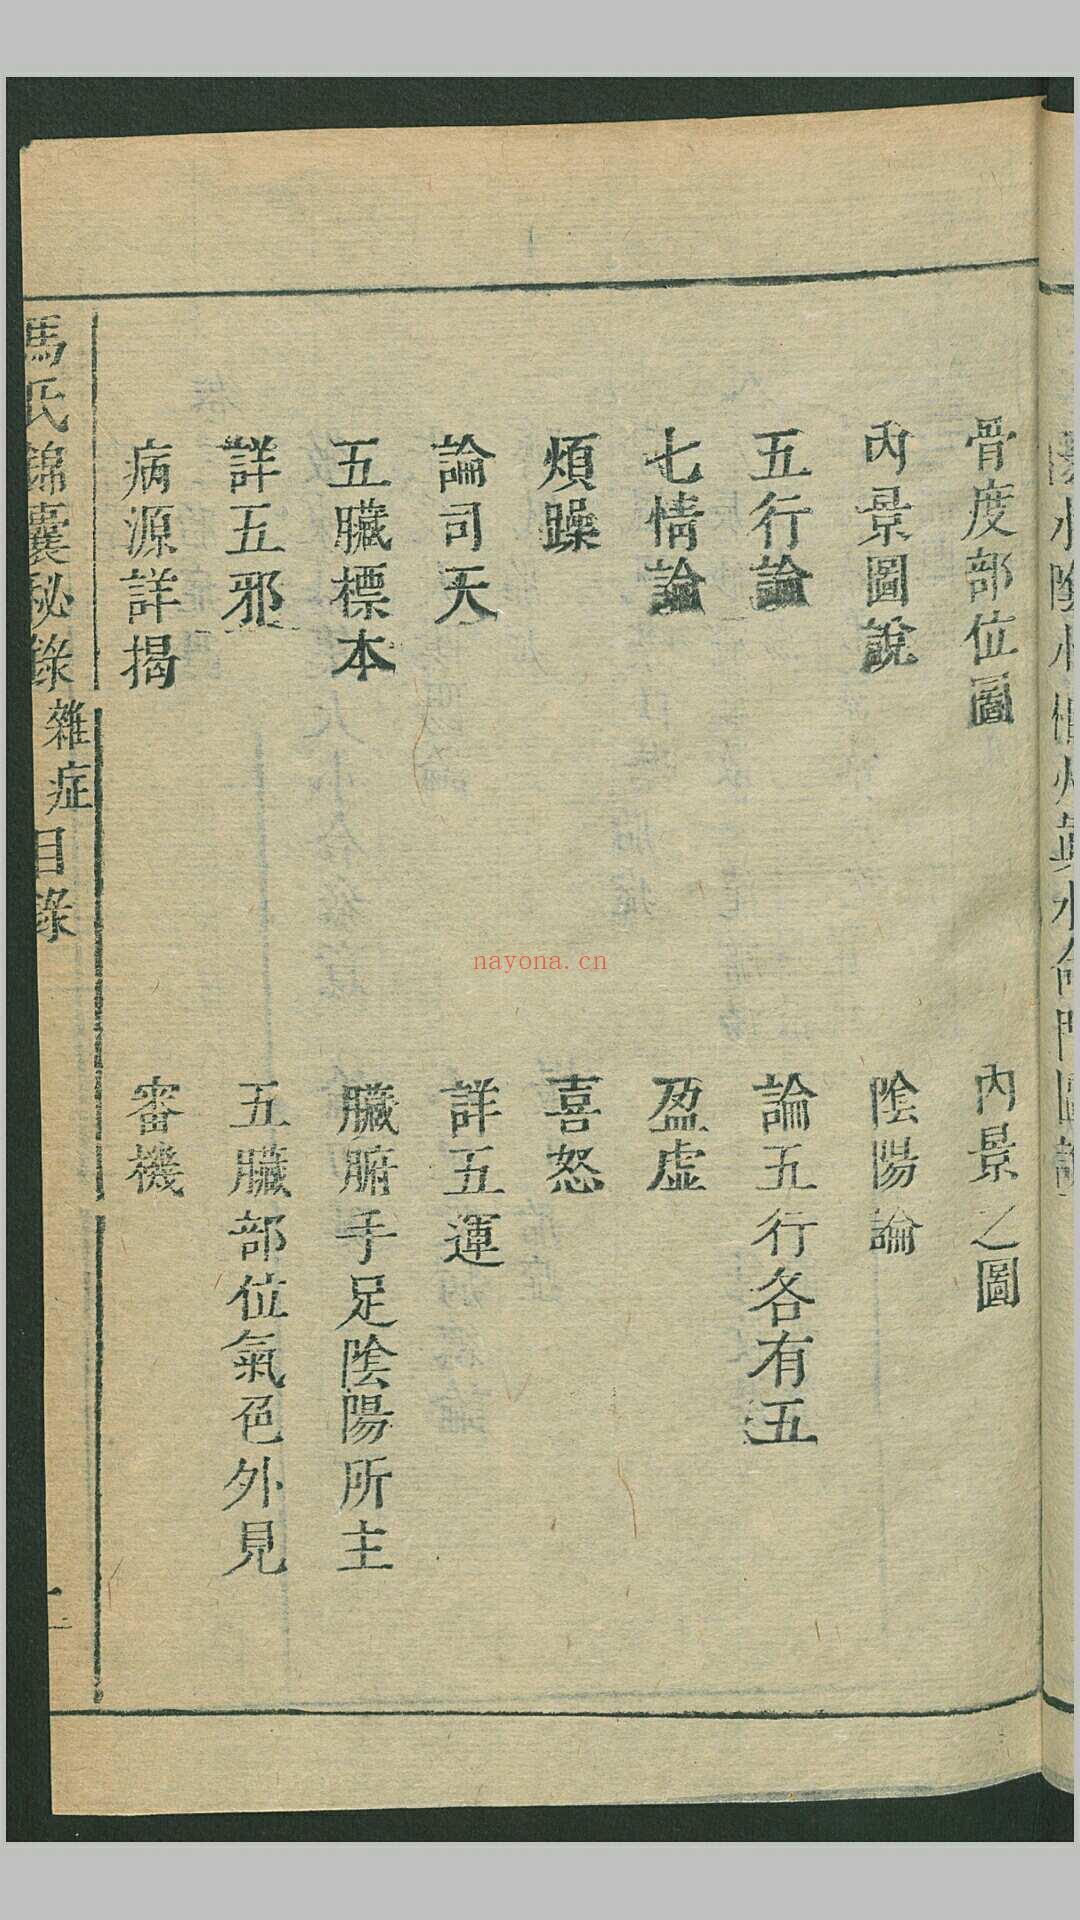 骨度部位圖　內景之圖
內景圖說　陰陽論
五行論　論五行各有五
七情論　盈虛
煩躁　喜怒
論司天　詳五運
五臟標本　臟腑手足陰陽所主
詳五邪　五臟部位氣色外見
病源詳揭　審機
馮氏錦囊秘錄 雜症 目錄
nayona.cn